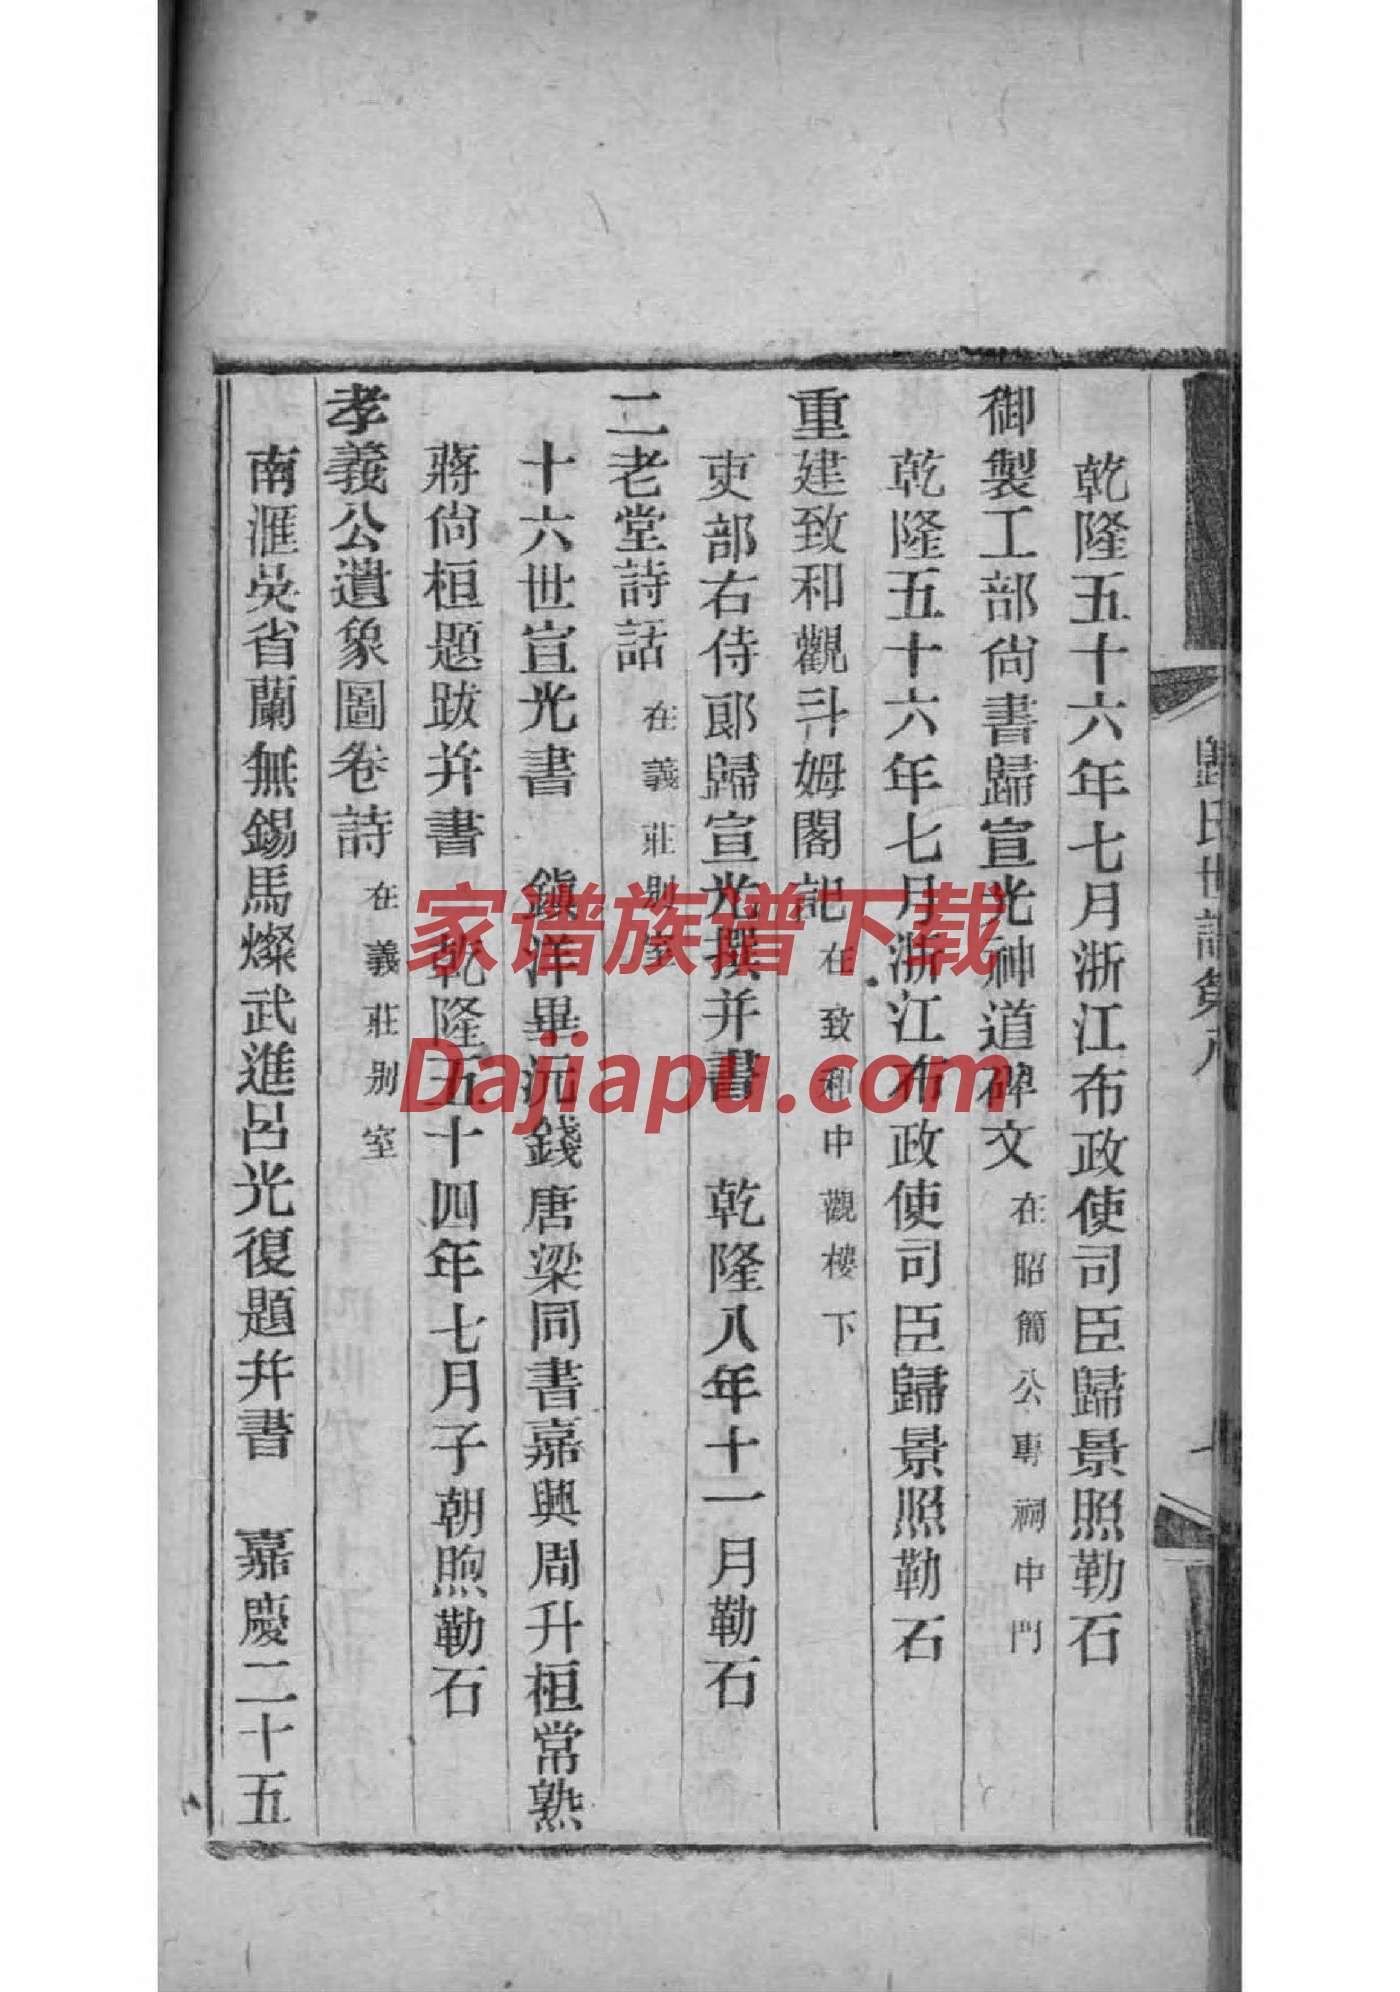 乾隆五十六年七月浙江布政使司臣歸景照勒石
御製工部尙書歸宣光神道碑文 在昭簡公專祠中門
乾隆五十六年七月浙江布政使司臣歸景照勒石
重建致和觀斗姆閣記 在致和中觀樓下
吏部右侍郞歸宣光撰并書 乾隆八年十一月勒石
二老堂詩話 在義莊別室
十六世宣光書 鎭洋畢沅錢唐梁同書嘉興周升桓常熟
蔣尙桓題跋并書 乾隆五十四年七月子朝煦勒石
孝義公遺象圖卷詩 在義莊別室
南滙吳省蘭無錫馬燦武進呂光復題并書 嘉慶二十五
歸氏世譜第八
家谱族谱下载
Dajiapu.com